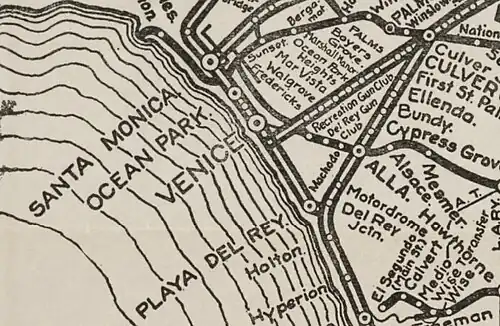 Bergo
PALMS
Winslow
Nation
Sunset.
Bay
Grove.
Marshall Manor
Ocean Park
Heights.
Mar Vista
Walgrove
Fredericks
Culver
CULVER
First St. Pa
Ellenda.
Bundy.
Cypress Grov
Recreation Gun Club
Del Rey Gun
Club
SANTA MONICA.
OCEAN PARK.
VENICE
Machado
Mesmer
Alsace
ALLA.
Hawthorne
Motordrome
Del Rey
Jctn.
PLAYA DEL REY.
Holton.
Hyperion
El Segundo
(Main St.)
Calvert
Medio
Wise Transfer
Wise